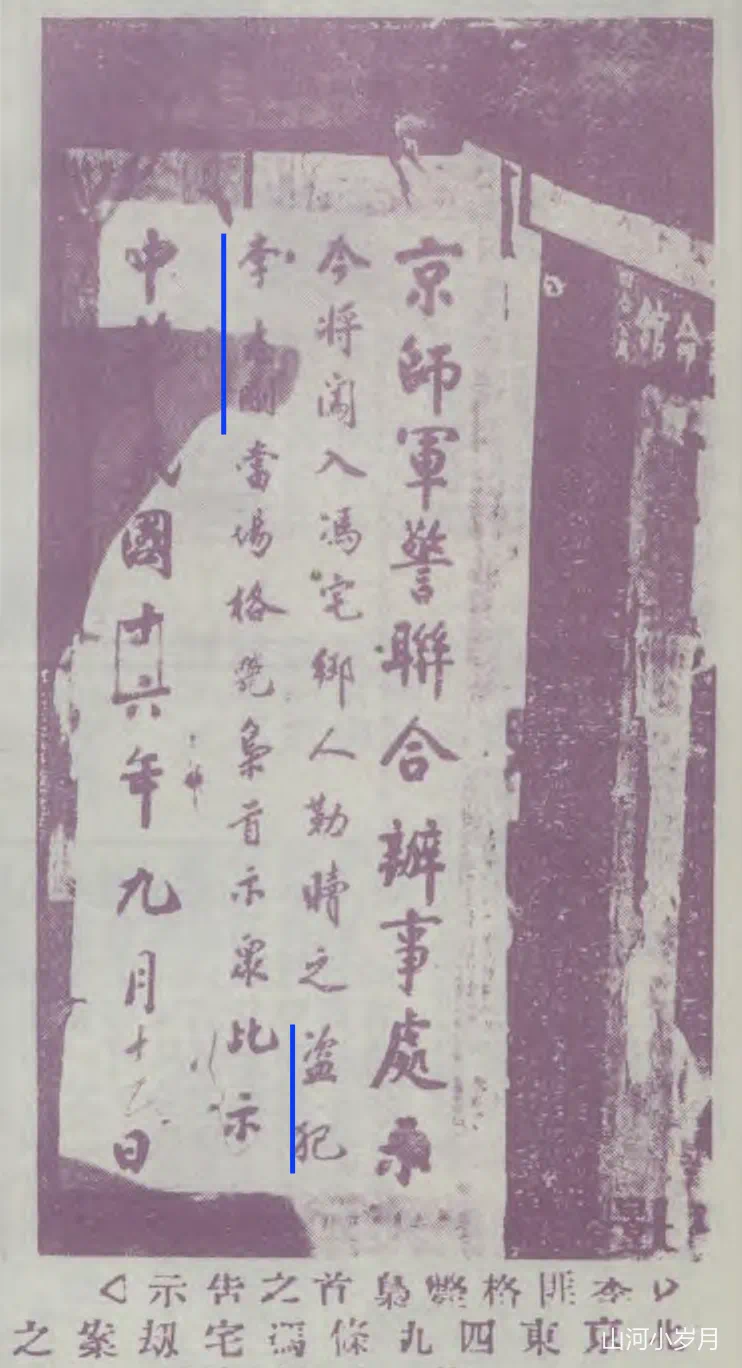 京師軍警聯合辦事處示
今將闖入馮宅綁人勒贖之盜犯
李志剛當場格斃梟首示眾此示
中 國十六年九月十 日
會館
北京東四九條馮宅刼案之
李匪格斃梟首之告示
山河小岁月